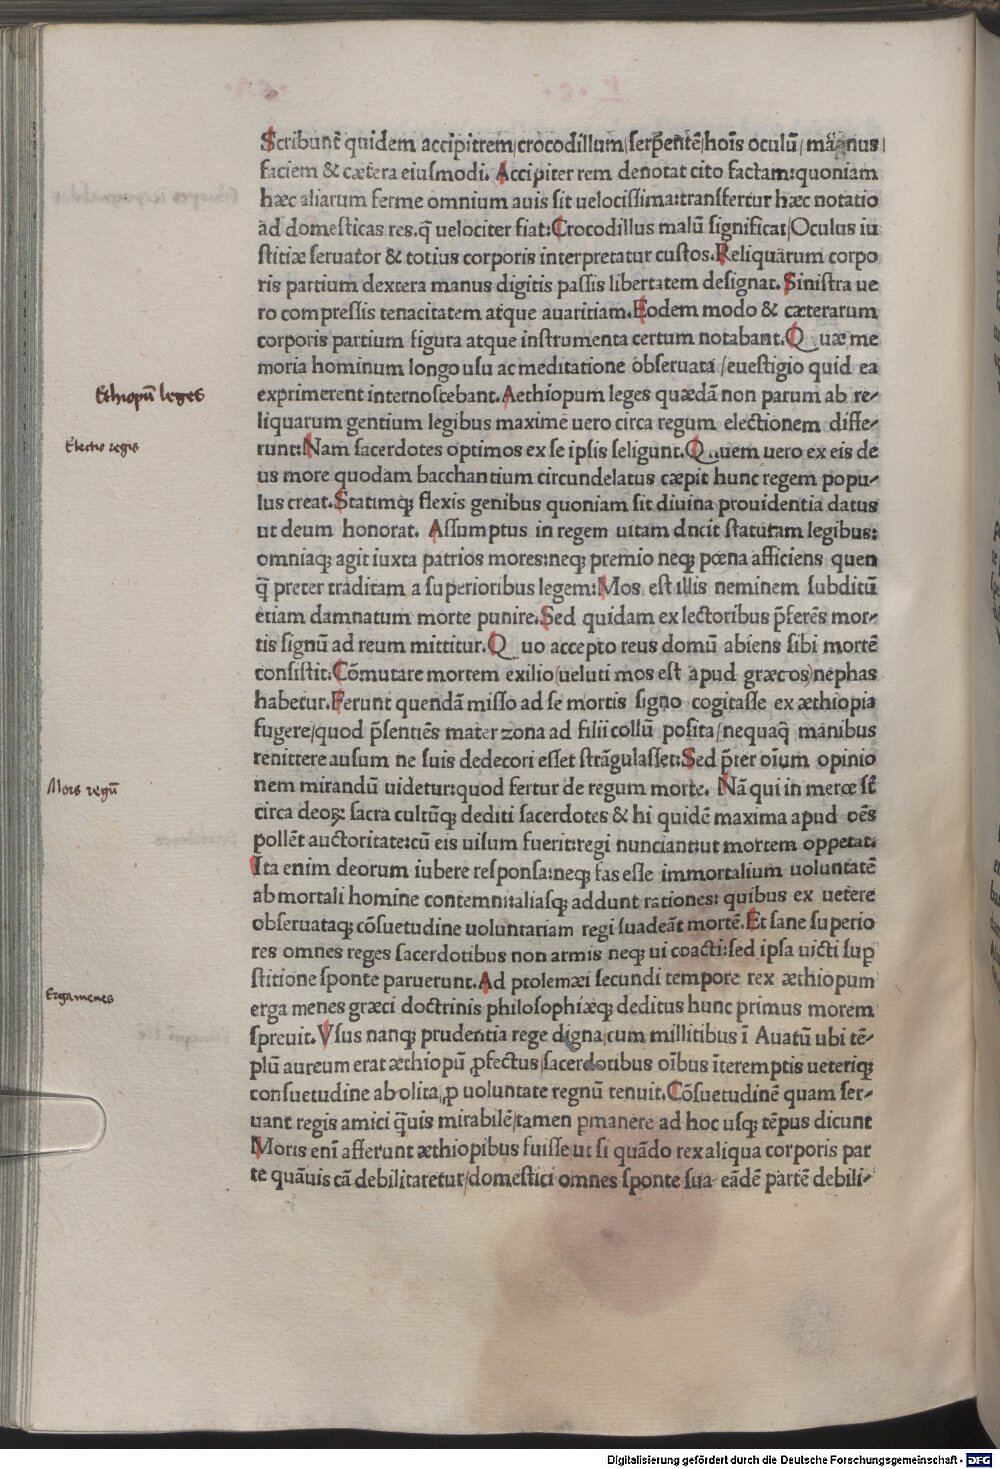 Scribunt̃ quidem accipitrem/crocodillum/serp̃entẽ/hoĩs oculũ/ mãgnus/
faciem & cætera eiusmodi. Accipiter rem denotat cito factam:quoniam
hæc aliarum ferme omnium auis sit uelocissima:transfertur hæc notatio
ad domesticas res.q̃ uelociter fiat:Crocodillus malũ significat/Oculus iu
stitiæ seruator & totius corporis interpretatur custos.Reliquarum corpo
ris partium dextera manus digitis passis libertatem designat. Sinistra ue
ro compressis tenacitatem atque auaritiam.Eodem modo & cæterarum
corporis partium figura atque instrumenta certum notabant.Quæ me
moria hominum longo usu ac meditatione obseruata /euestigio quid ea
exprimerent internoscebant.Aethiopum leges quædã non parum ab re-
liquarum gentium legibus maxime uero circa regum electionem diffe-
runt:Nam sacerdotes optimos ex se ipsis seligunt.Quem uero ex eis de
us more quodam bacchantium circundelatus cæpit hunc regem popu-
lus creat.Statimq; flexis genibus quoniam sit diuina prouidentia datus
ut deum honorat. Assumptus in regem uitam dncit statutam legibus:
omniaq; agit iuxta patrios mores:neq; premio neq; pœna afficiens quen
q̃ preter traditam a superioribus legem:Mos est illis neminem subditũ
etiam damnatum morte punire.Sed quidam ex lectoribus p̃ferẽs mor-
tis signũ ad reum mittitur.Quo accepto reus domũ abiens sibi mortẽ
consistit:Cõmutare mortem exilio(ueluti mos est apud græcos)nephas
habetur.Ferunt quendã misso ad se mortis signo cogitasse ex æthiopia
fugere/quod p̃sentiẽs mater zona ad filii collũ posita/nequaq̃ manibus
renittere ausum ne suis dedecori esset strãgulasset:Sed p̃ter oĩum opinio
nem mirandũ uidetur:quod fertur de regum morte. Nã qui in meroe st̃
circa deoꝝ sacra cultũq; dediti sacerdotes & hi quidẽ maxima apud oẽs
pollẽt auctoritate:cũ eis uisum fuerit:regi nunciant:ut mortem oppetat:
Ita enim deorum iubere responsa:neq; fas esse immortalium uoluntatẽ
ab mortali homine contemni:aliasq; addunt rationes: quibus ex uetere
obseruataq; cõsuetudine uoluntariam regi suadeãt mortẽ.Et sane superio
res omnes reges sacerdotibus non armis neq; ui coacti:sed ipsa uicti suꝑ
stitione sponte paruerunt.Ad ptolemæi secundi tempore rex æthiopum
erga menes græci doctrinis philosophiæq; deditus hunc primus morem
spreuit.Vsus nanq; prudentia rege digna/cum millitibus ĩ Auatũ ubi tẽ-
plũ aureum erat æthiopũ ꝓfectus/sacerdotibus oĩbus ĩteremptis ueteriq;
consuetudine abolita/ꝓ uoluntate regnũ tenuit.Cõsuetudinẽ quam ser-
uant regis amici q̃uis mirabilẽ/tamen ꝑmanere ad hoc usq; tẽpus dicunt
Moris enĩ afferunt æthiopibus fuisse ut si quãdo rex aliqua corporis par
te quãuis cã debilitaretur/domestici omnes sponte sua eãdẽ partẽ debili-
Ethiopũ leges
Electio regis
Mors regũ
Ergamenes
Digitalisierung gefördert durch die Deutsche Forschungsgemeinschaft - DFG